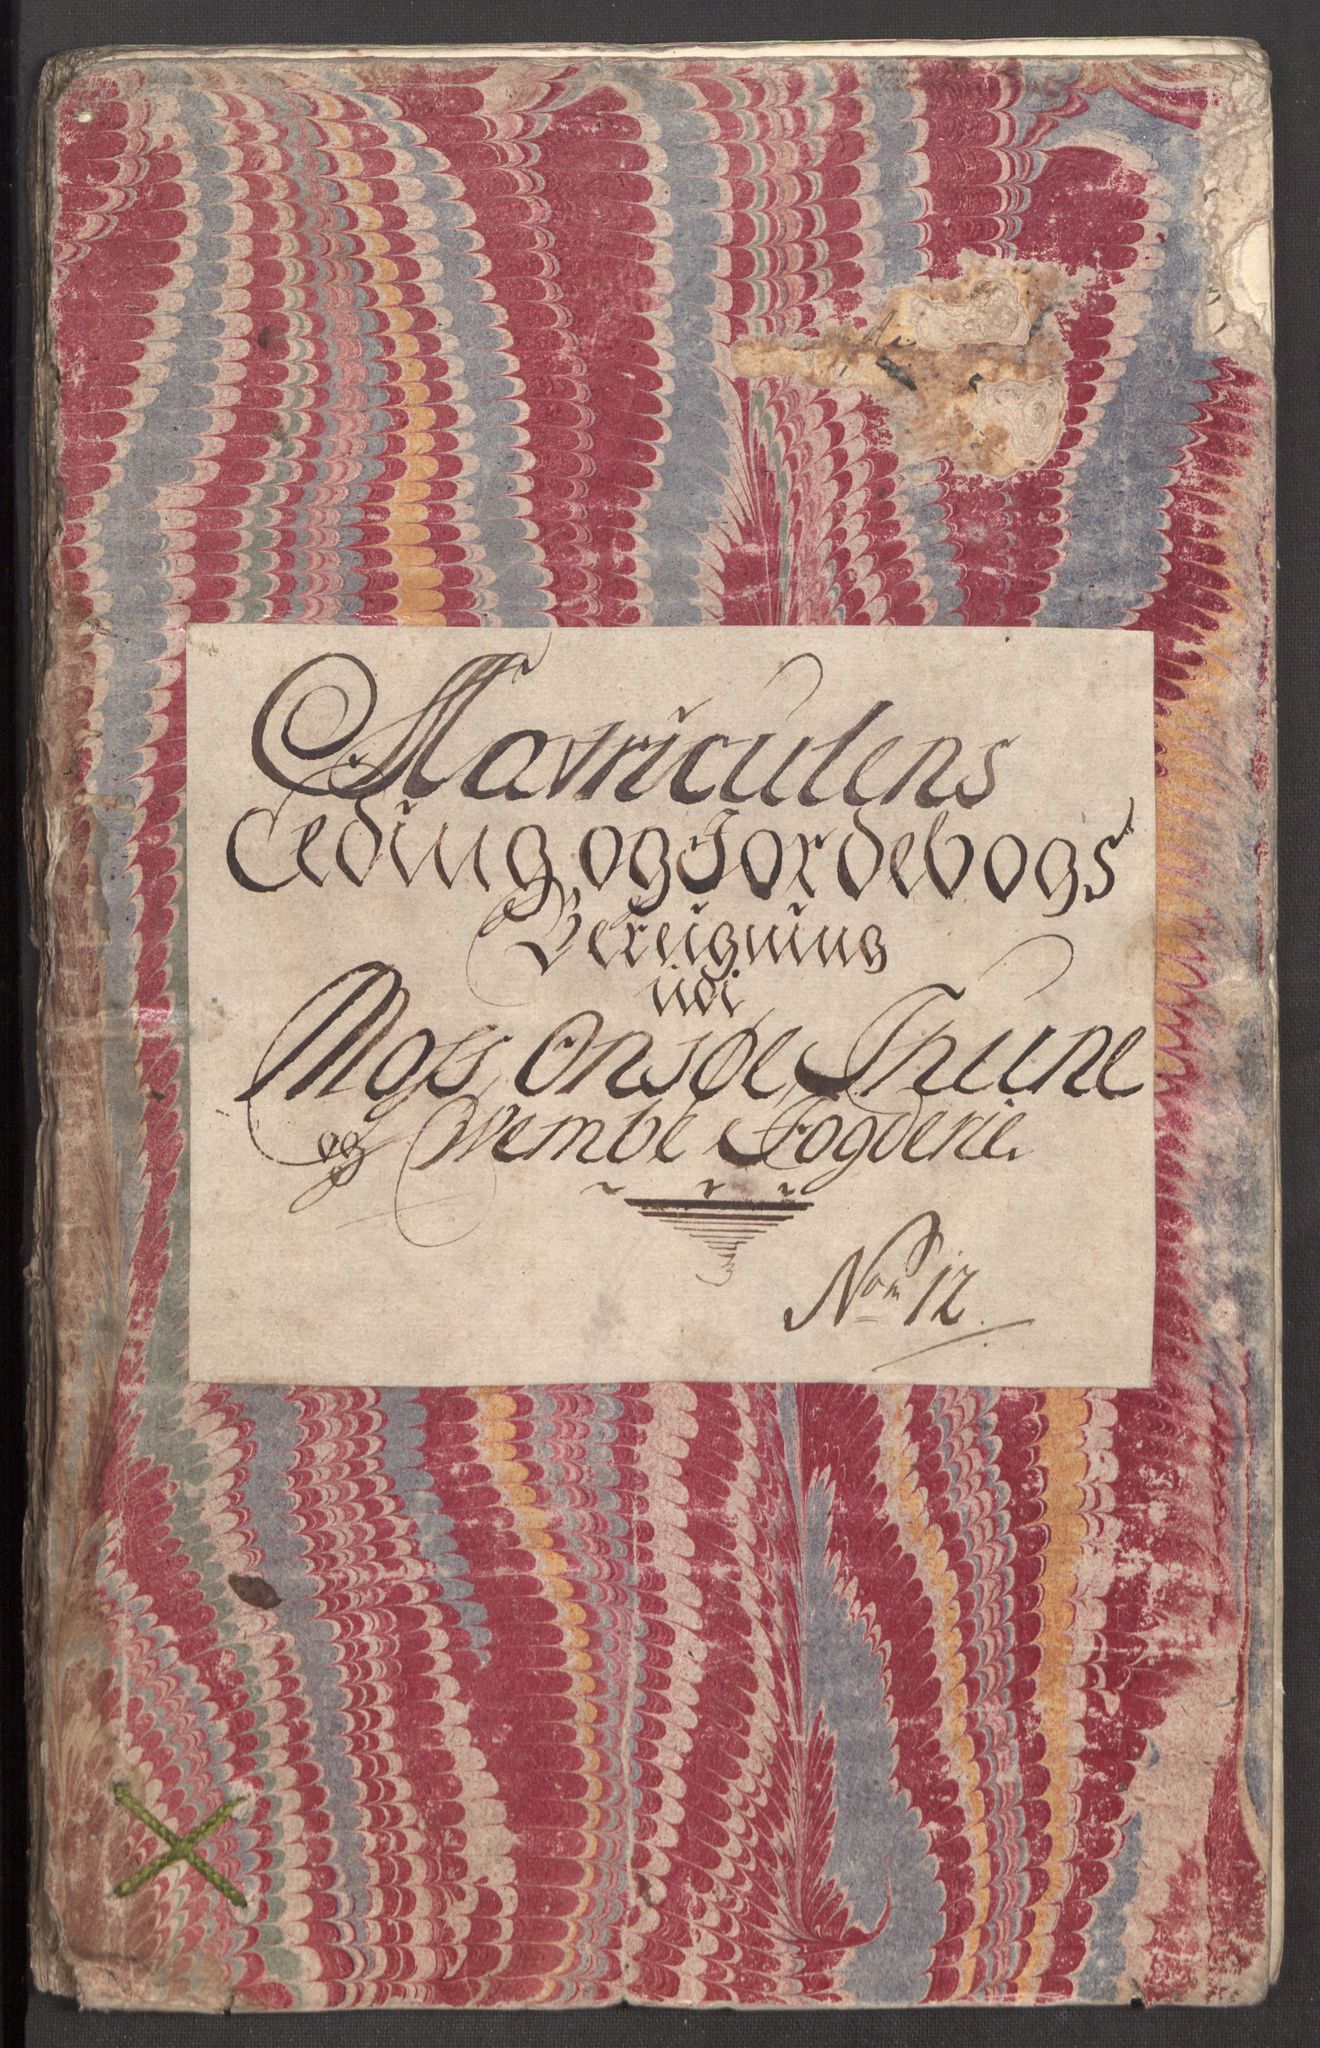 Matriculens
Leding og Jordebogs
Bereigning
udi
Moss, Onsøe, Thune
og Wembe Fogderie.
No 12